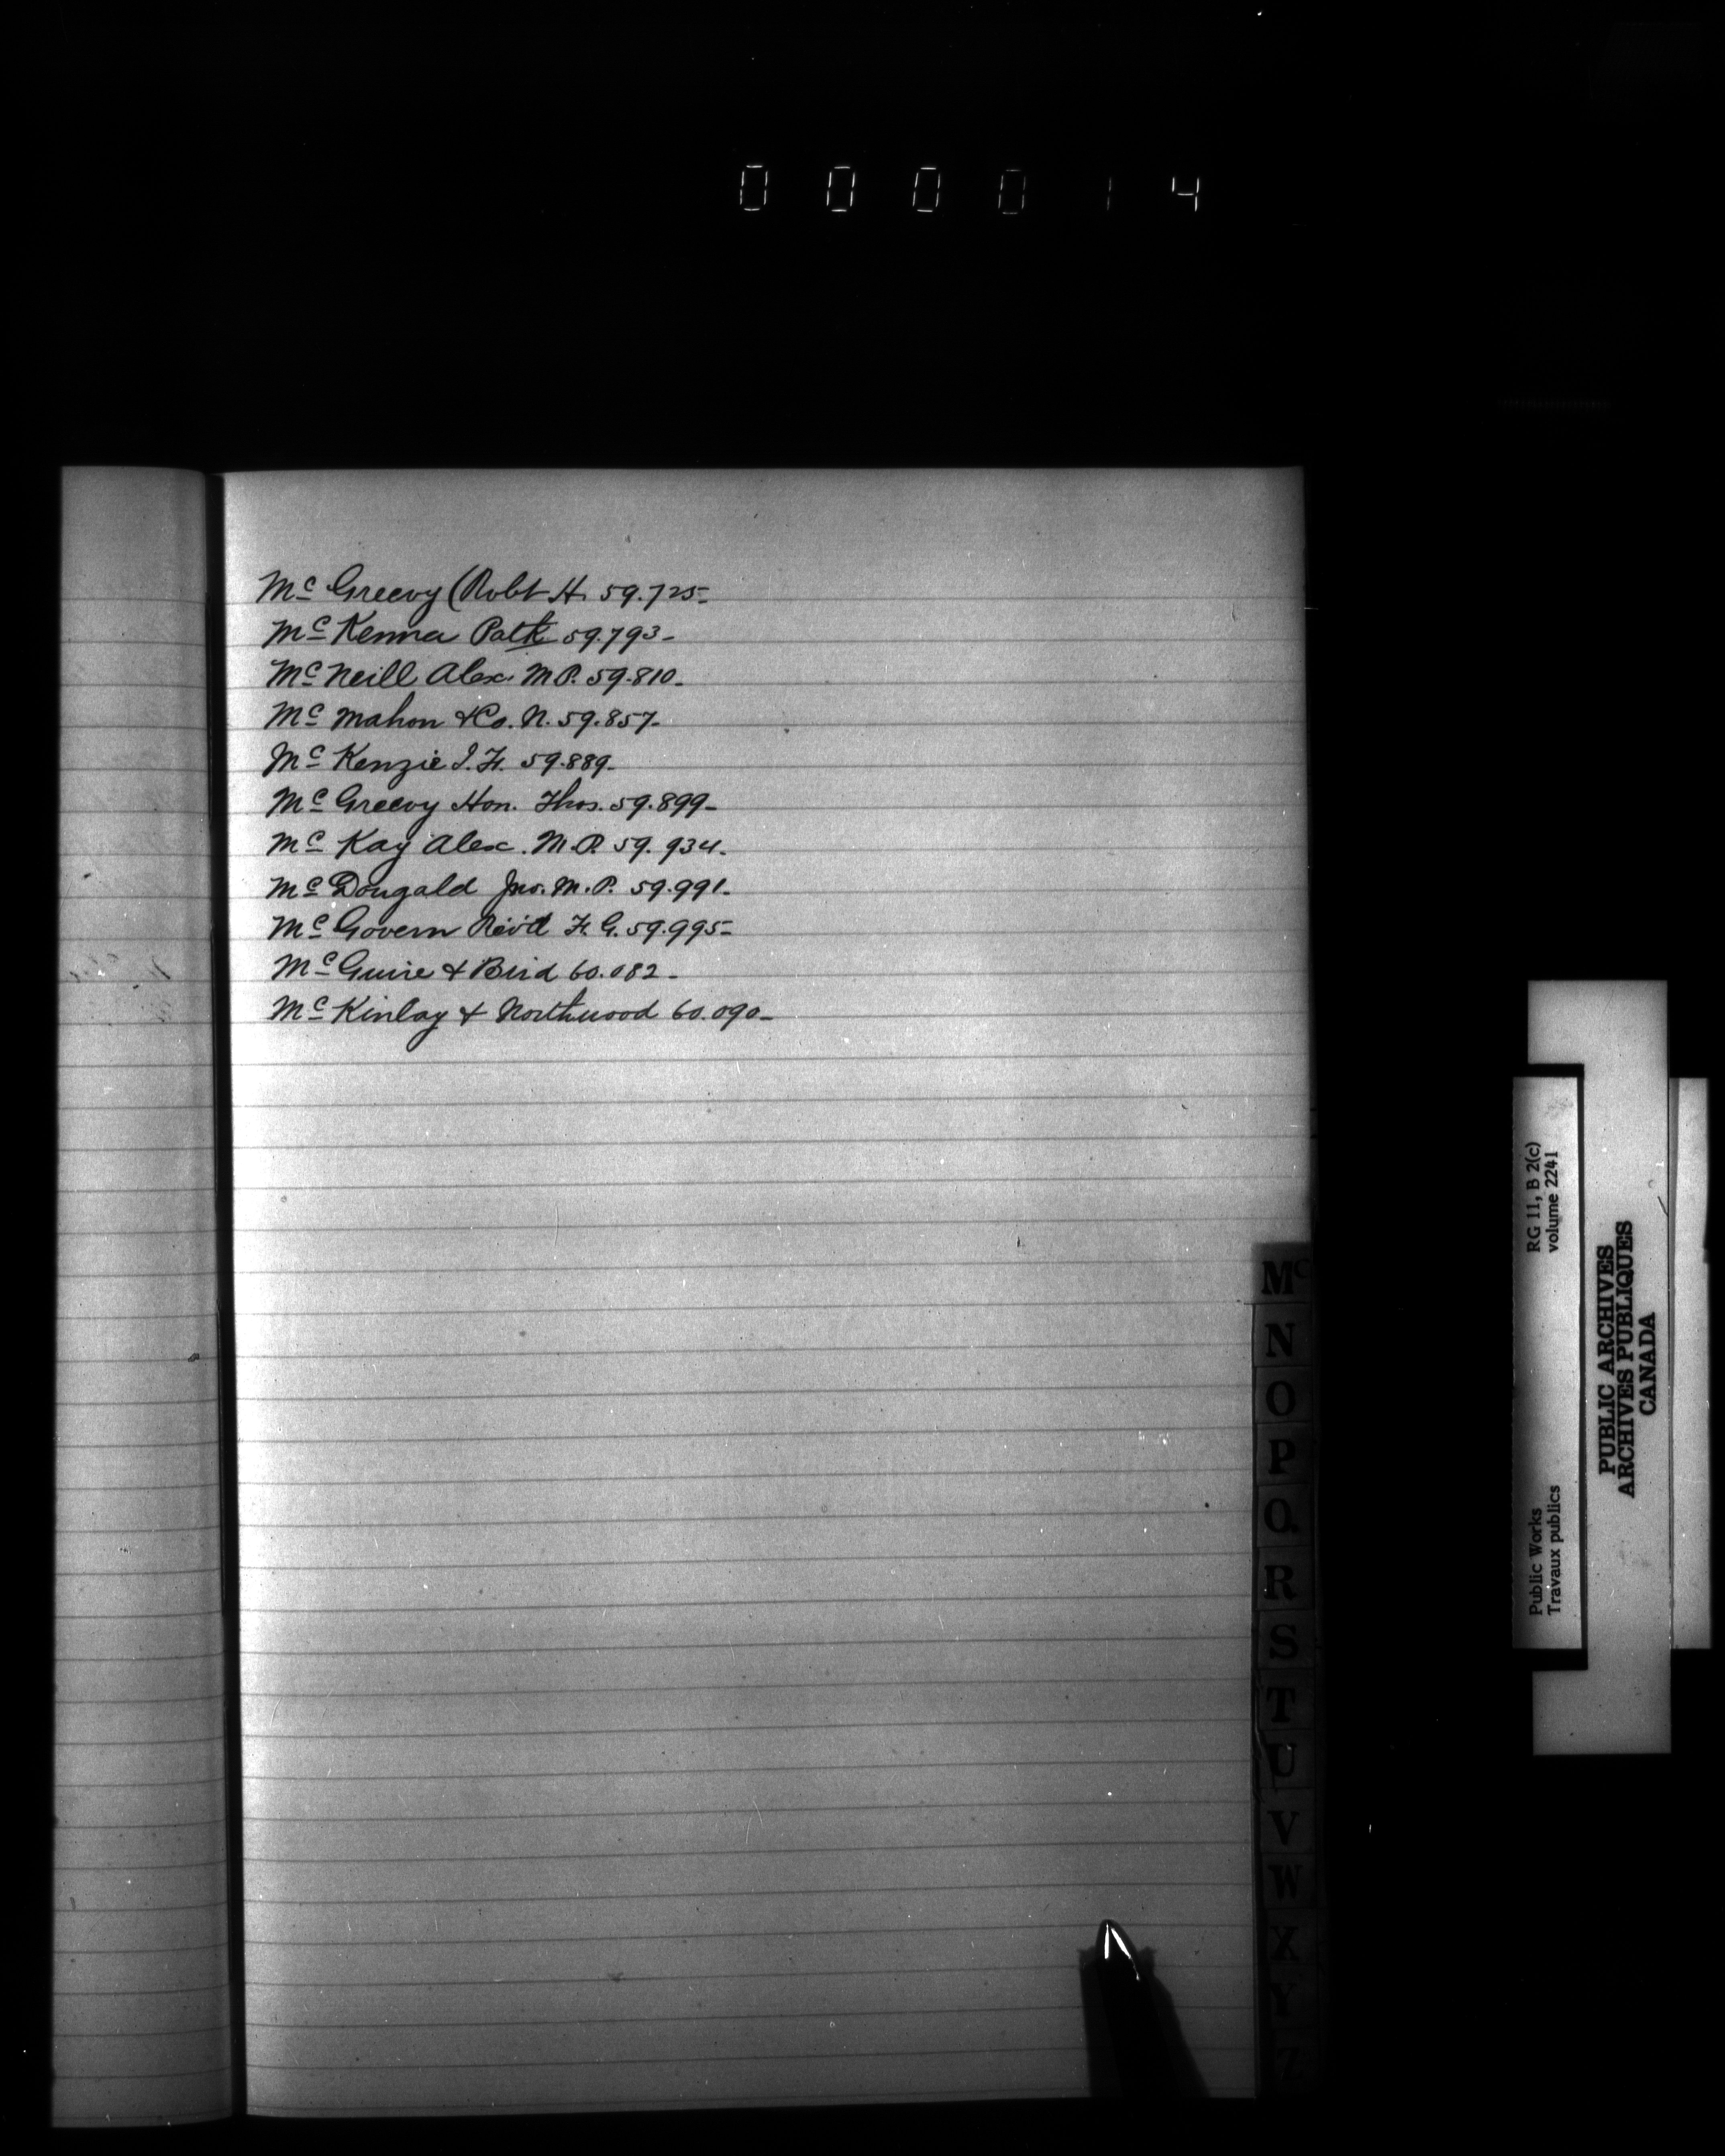 000014
Mc Greevy (Robt H. 59.725-
Mc Kenna Patk 59.793-
Mc Neill Alex. M.P. 59.810-
Mc Mahon & Co. N. 59.857-
Mc Kenzie J. H. 59.889-
Mc Greevy Hon. Thos. 59.899-
Mc Kay Alex. M.P. 59.934-
Mc Dougald Jno. M.P. 59.991-
Mc Govern Rev'd F. G. 59.995-
Mc Guire & Bird 60.082-
Mc Kinlay & Northwood 60.090-
Mc
N
O
P
Q
R
S
T
U
V
W
X
Y
Z
Public Works
Travaux publics
RG 11, B 2(c)
volume 2241
PUBLIC ARCHIVES
ARCHIVES PUBLIQUES
CANADA